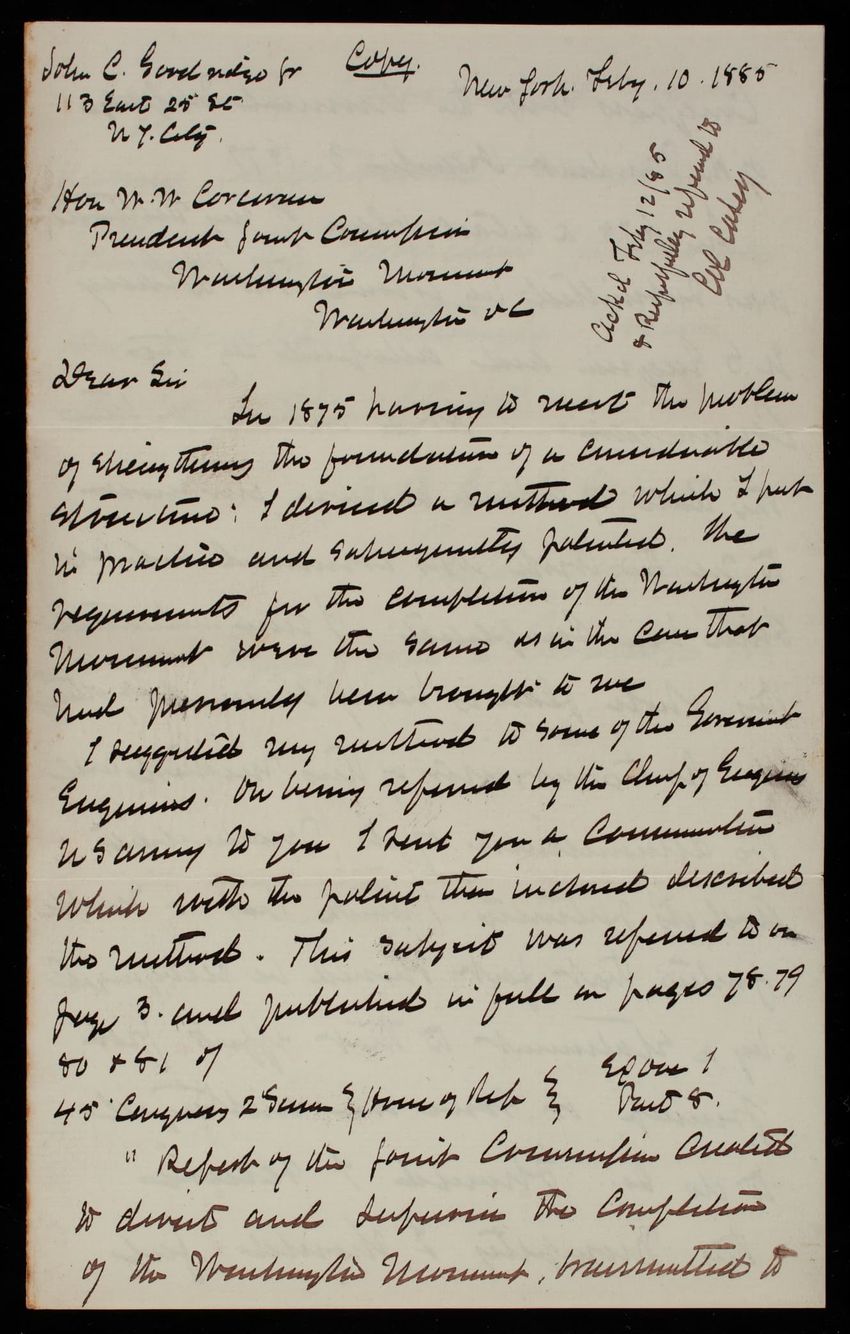 John C. Goodridge Jr
Copy.
New York. Feby. 10. 1885
113 East 25 St
N Y. City.
Ackd Feby 12/85
& Respectfully referred to
Col Casey
Hon W. W Corcoran
President Joint Commission
Washington Monument
Washington DC
Dear Sir
In 1875 having to meet the problem
of strengthening the foundation of a considerable
structure; I devised a method which I put
in practice and subsequently patented. The
requirements for the completion of the Washington
Monument were the same as in the case that
had previously been brought to me
I suggested my method to some of the Government
Engineers. On being referred by the Chief of Engineers
U S army to you I sent you a Communication
which with the patent then inclosed described
the method. This subject was referred to on
page 3. and published in full on pages 78. 79
80 & 81 of
45 Congress 2 Session } House of Rep } Ex Doc 1
Part 8.
" Report of the Joint Commission Created
to direct and supervise the Completion
of the Washington Monument, transmitted to